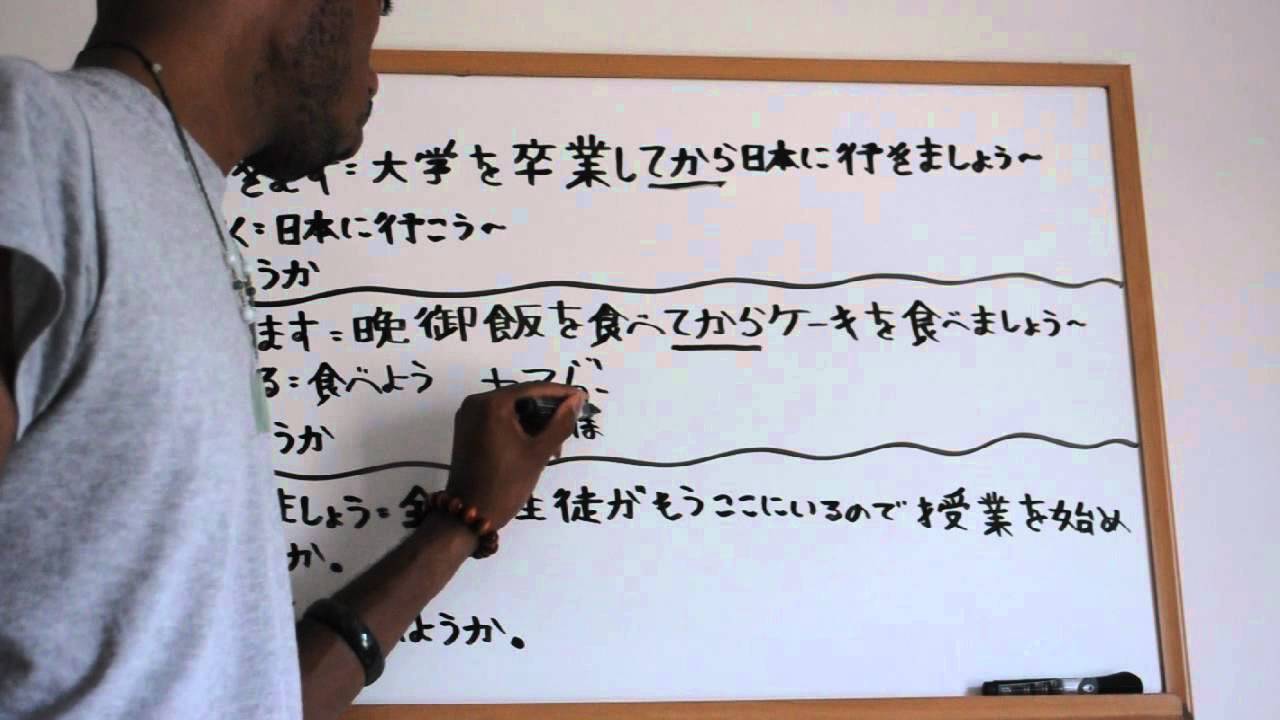 きます=大学を卒業してから日本に行きましょう〜
く=日本に行こう〜
うか
ます=晩御飯を食べてからケーキを食べましょう〜
る=食べよう
うか
ましょう=全 生徒がもうここにいるので授業を始め
か。
ようか。